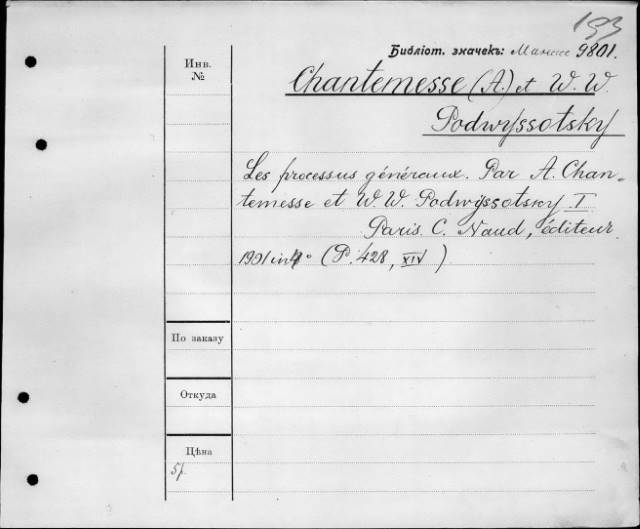 193
Библіот. значекъ: 9801.
Инв.
№
Chantemesse (A.) et W. W.
Podwyssotsky
Les processus généraux. Par A. Chan-
temesse et W. W. Podwÿssotsky. I
Paris. C. Naud, éditeur.
1901 in 4° (P. 428, XIV)
По заказу
Откуда
Цѣна